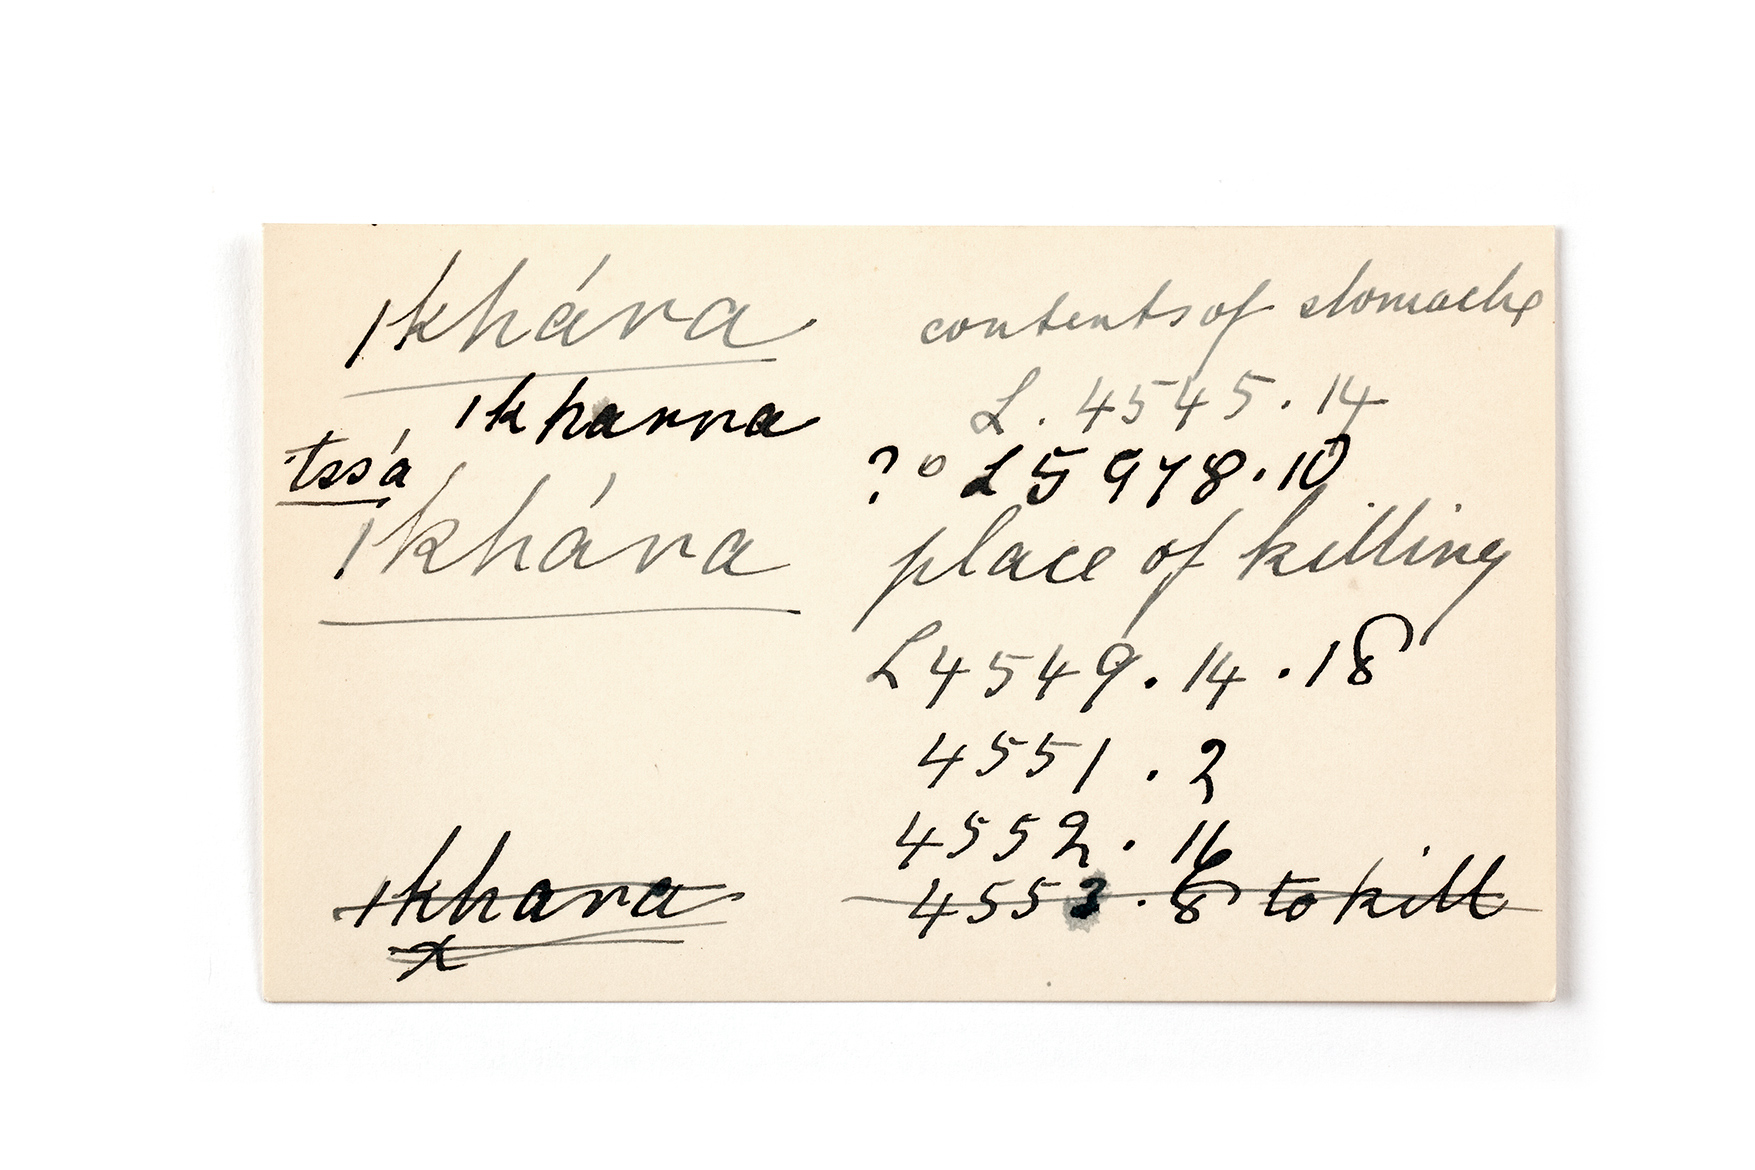 |khára contents of stomach
L. 4545.14
|kharra
? o L 5978.10
tssʼa
|khára place of killing
L 4549.14.18
4551.2
4552.16
|khara 4553.8 to kill
x